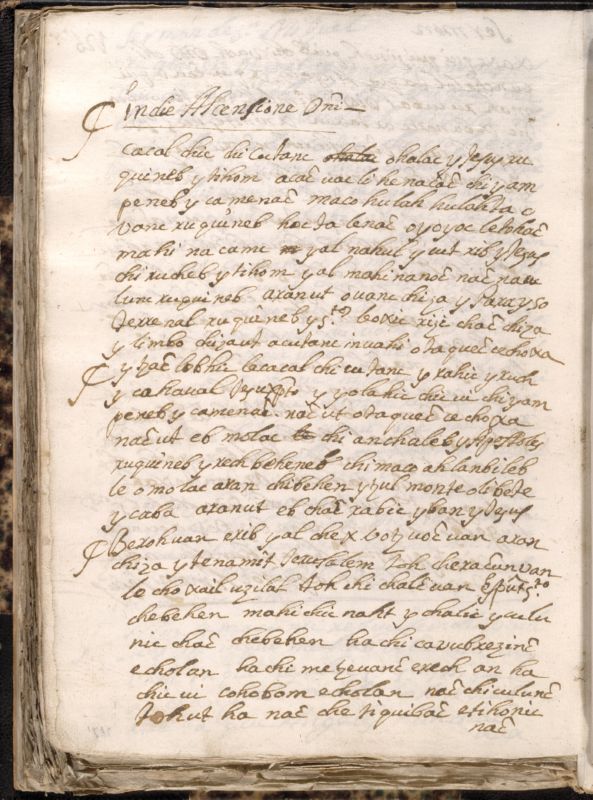 Indie Ascensione Dni
cacal chic chi cu tanc ohalac y Jesus ru
quineb y tihom acac vac li he nacac chi yam
peneb y camenac maco hulah hulahta o
vanc ruquineb hocta lenac oyoyoc letohac
mahi na camc yal nahul y vit rib y Jesus
chi rucheb y tihom yal mahi nanoc nac
lunc ruquineb aran ut ovanc chiza y Parayso
Terrenal ruquineb y sto boxic rije chac chiza
y limbo chizaut acutanc invahi otaquec cechoxa
y tzac lobhic lacacal chi cutanc y rahic y ruch
y cahaual Jesuxpto y yolahic chic vi chiyam
peneb y camenac nac ut otaquec ce choxa
nac ut eb molac chi anchaleb y Apostoles
ruquineb y rech beheneb chi maco ahlanbileb
le omolac aran chi behen y tzul monte olibete
ycaba aran ut eb chac rabic yban y Jesus
Berohvan erib yal chex voyvoc van aran
chiza y tenamit Jerusalem toh cheracunvan
le choxail uzilal toh chi chalc van espu sto
chebehen mahi chic naht y chalic yculu
nic chac chebehen ha chi cavubrezinc
echolan ha chi metzevanc erech an ha
chic vi cohobom echolan nac chi culunc
tohut ha nac che tiquibac etihonic
nac